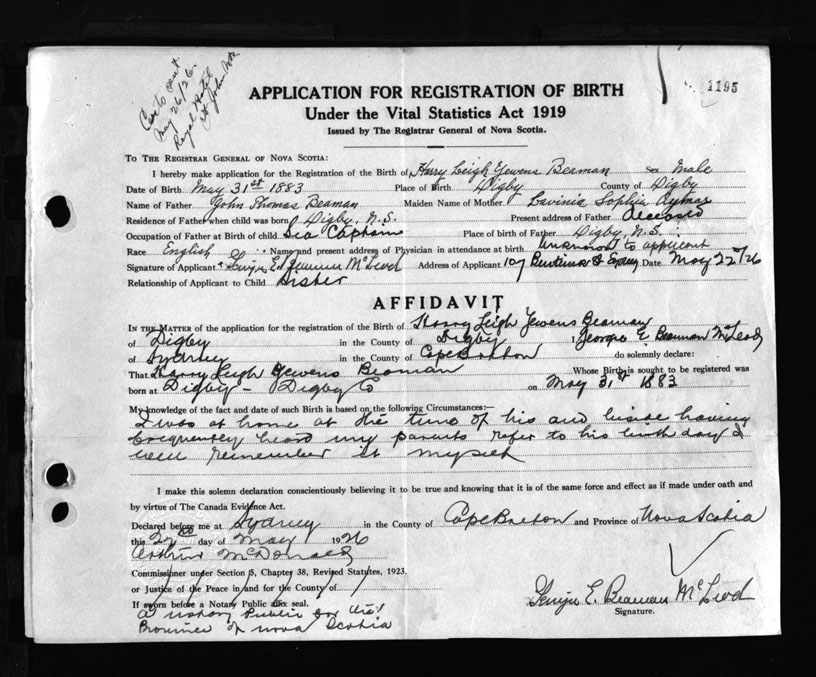 Cert sent
May 26/26.
Royal Hotel
St John NB
1195
APPLICATION FOR REGISTRATION OF BIRTH
Under the Vital Statistics Act 1919
Issued by The Registrar General of Nova Scotia.
TO THE REGISTRAR GENERAL OF NOVA SCOTIA:
I hereby make application for the Registration of the Birth of Harry Leigh Yewens Beaman Sex Male
Date of Birth May 31st 1883 Place of Birth Digby County of Digby
Name of Father John Thomas Beaman Maiden Name of Mother Lavinia Sophia
Residence of Father when child was born Digby, N.S. Present address of Father deceased
Occupation of Father at Birth of child Sea Captain Place of birth of Father Digby, N.S.
Race English Name and present address of Physician in attendance at birth unknown to applicant
Signature of Applicant Beaman McLeod Address of Applicant 107 Date May 22/26
Relationship of Applicant to Child Sister
AFFIDAVIT
IN THE MATTER of the application for the registration of the Birth of Harry Leigh Yewens Beaman
of Digby in the County of Digby I Georgie E. Beaman McLeod
of Sydney in the County of Cape Breton do solemnly declare:
That Harry Leigh Yewens Beaman Whose Birth is sought to be registered was
born at Digby - Digby Co on May 31st 1883
My knowledge of the fact and date of such Birth is based on the following Circumstances:—
I was at home at the time of his and beside having
frequently heard my parents refer to his birth day I
well remember it myself
I make this solemn declaration conscientiously believing it to be true and knowing that it is of the same force and effect as if made under oath and
by virtue of The Canada Evidence Act.
Declared before me at Sydney in the County of Cape Breton and Province of Nova Scotia
this 22nd day of May 1926
Arthur McDonald
Commissioner under Section 5, Chapter 38, Revised Statutes, 1923.
or Justice of the Peace in and for the County of
If sworn before a Notary Public affix seal.
A notary Public for the
Province of Nova Scotia
Georgie E. Beaman McLeod
Signature.